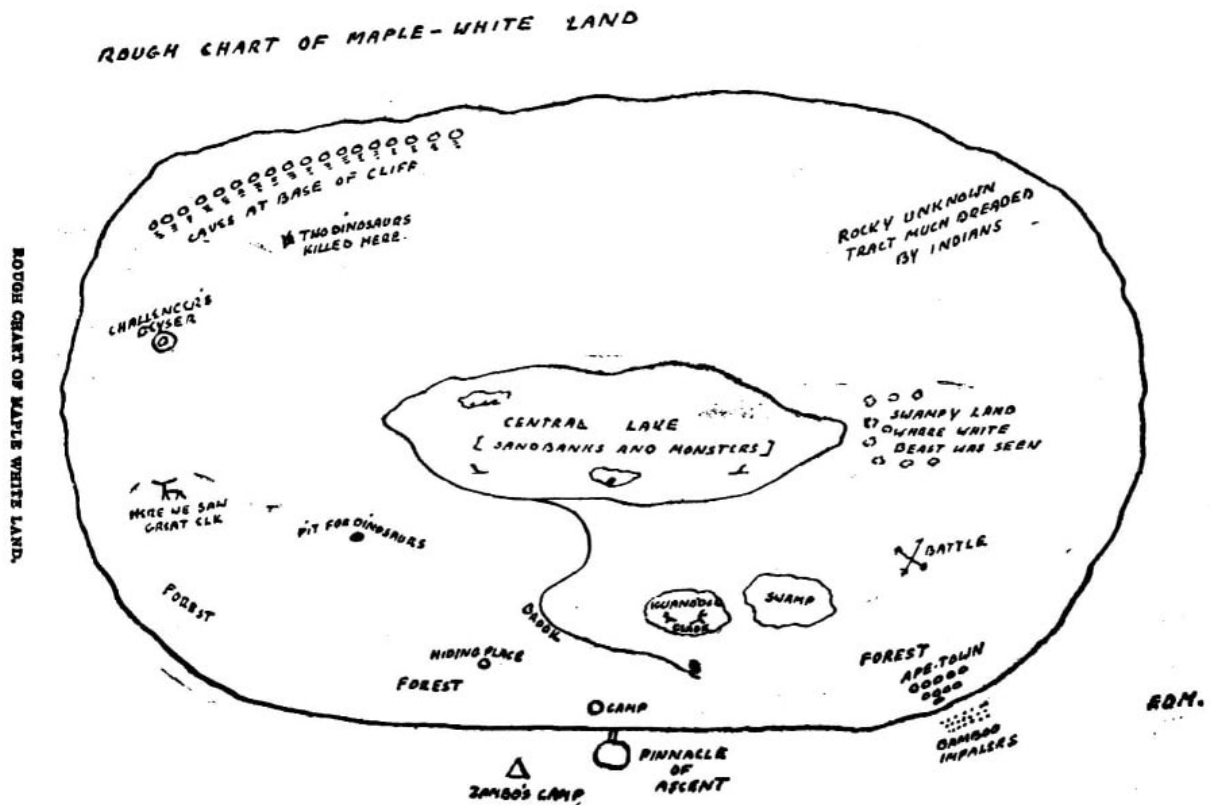 ROUGH CHART OF MAPLE-WHITE LAND
CAVES AT BASE OF CLIFF
TWO DINOSAURS
KILLED HERE.
ROCKY UNKNOWN
TRACT MUCH DREADED
BY INDIANS
CHALLENGER'S
GEYSER
CENTRAL LAKE
[SANDBANKS AND MONSTERS]
SWAMPY LAND
WHERE WHITE
BEAST WAS SEEN
HERE WE SAW
GREAT ELK
PIT FOR DINOSAURS
BATTLE
FOREST
BROOK
IGUANODON
GLADE
SWAMP
HIDING PLACE
FOREST
FOREST
APE-TOWN
CAMP
BAMBOO
IMPALERS
PINNACLE
OF
ASCENT
ZAMBO'S CAMP
EDM.
ROUGH CHART OF MAPLE WHITE LAND.